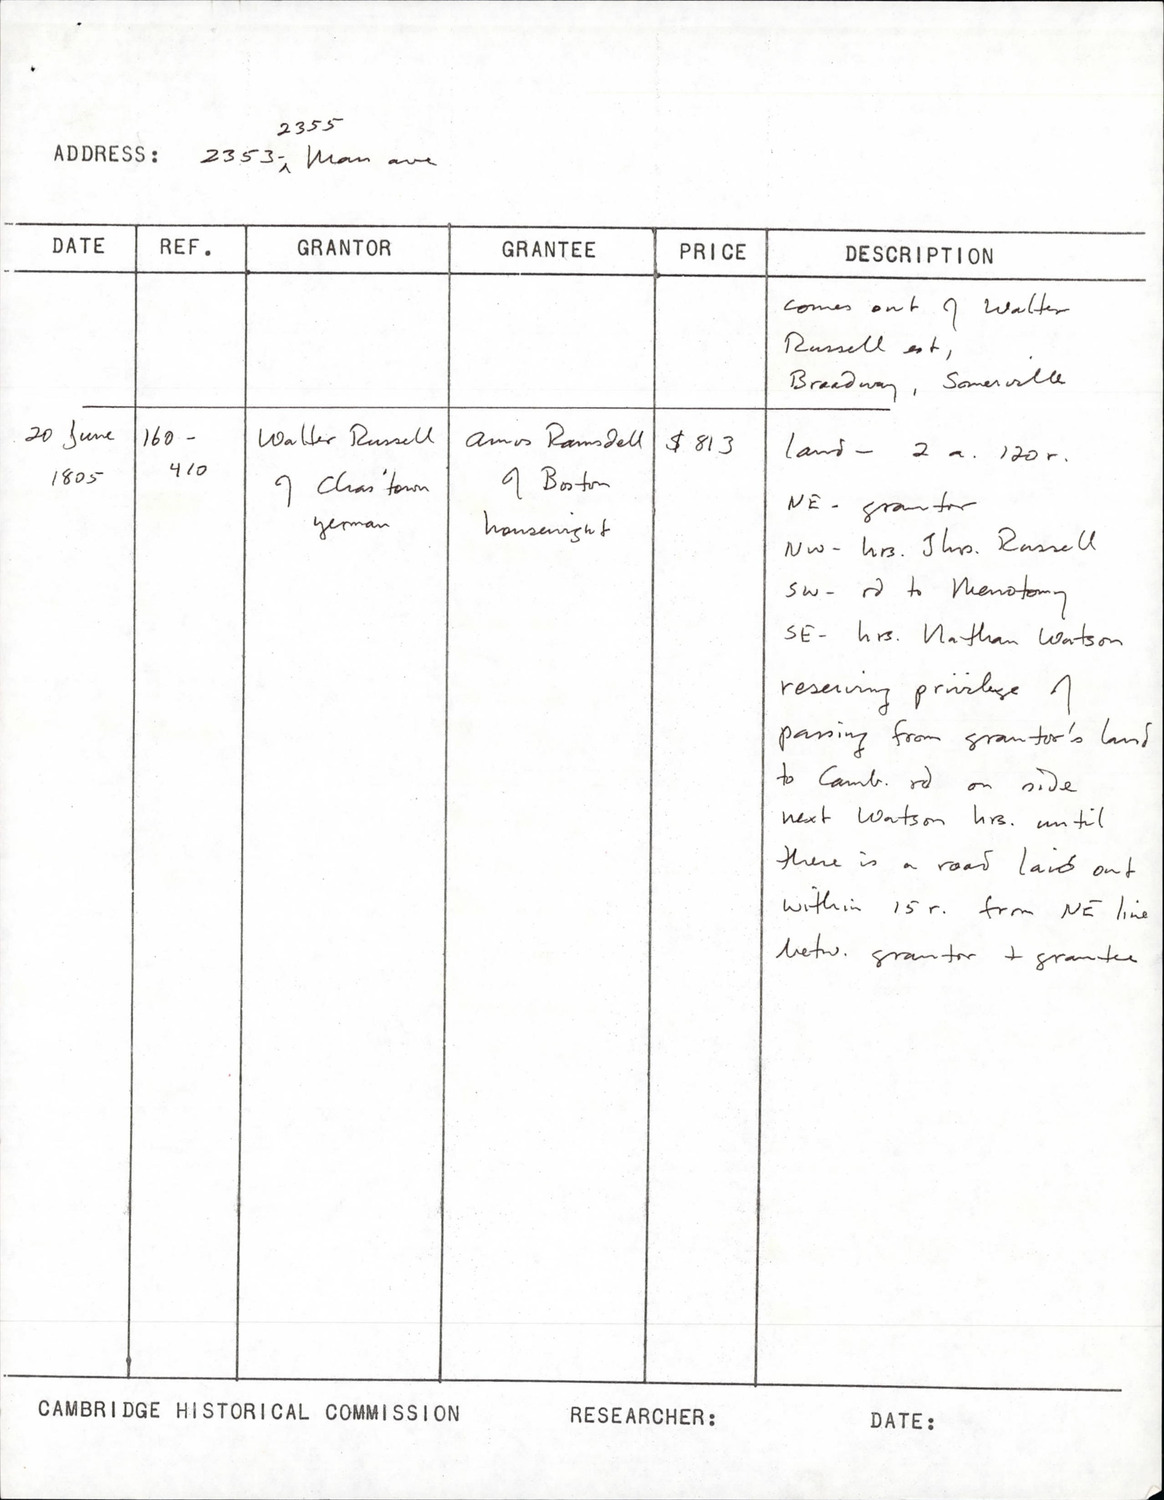 2355
ADDRESS: 2353-^ Mass ave
DATE REF. GRANTOR GRANTEE PRICE DESCRIPTION
comes out of Walter
Russell est,
Broadway, Somerville
20 June
1805
160 -
410
Walter Russell
of Chas'town
yeoman
Amos Ramsdell
of Boston
housewright
$ 813
land - 2 a. 120 r.
NE - grantor
NW - hrs. Thos. Russell
SW - rd to Menotomy
SE - hrs. Nathan Watson
reserving privilege of
passing from grantor's land
to Camb. rd on side
next Watson hrs. until
there is a road laid out
within 15 r. from NE line
betw. grantor + grantee
CAMBRIDGE HISTORICAL COMMISSION RESEARCHER: DATE: